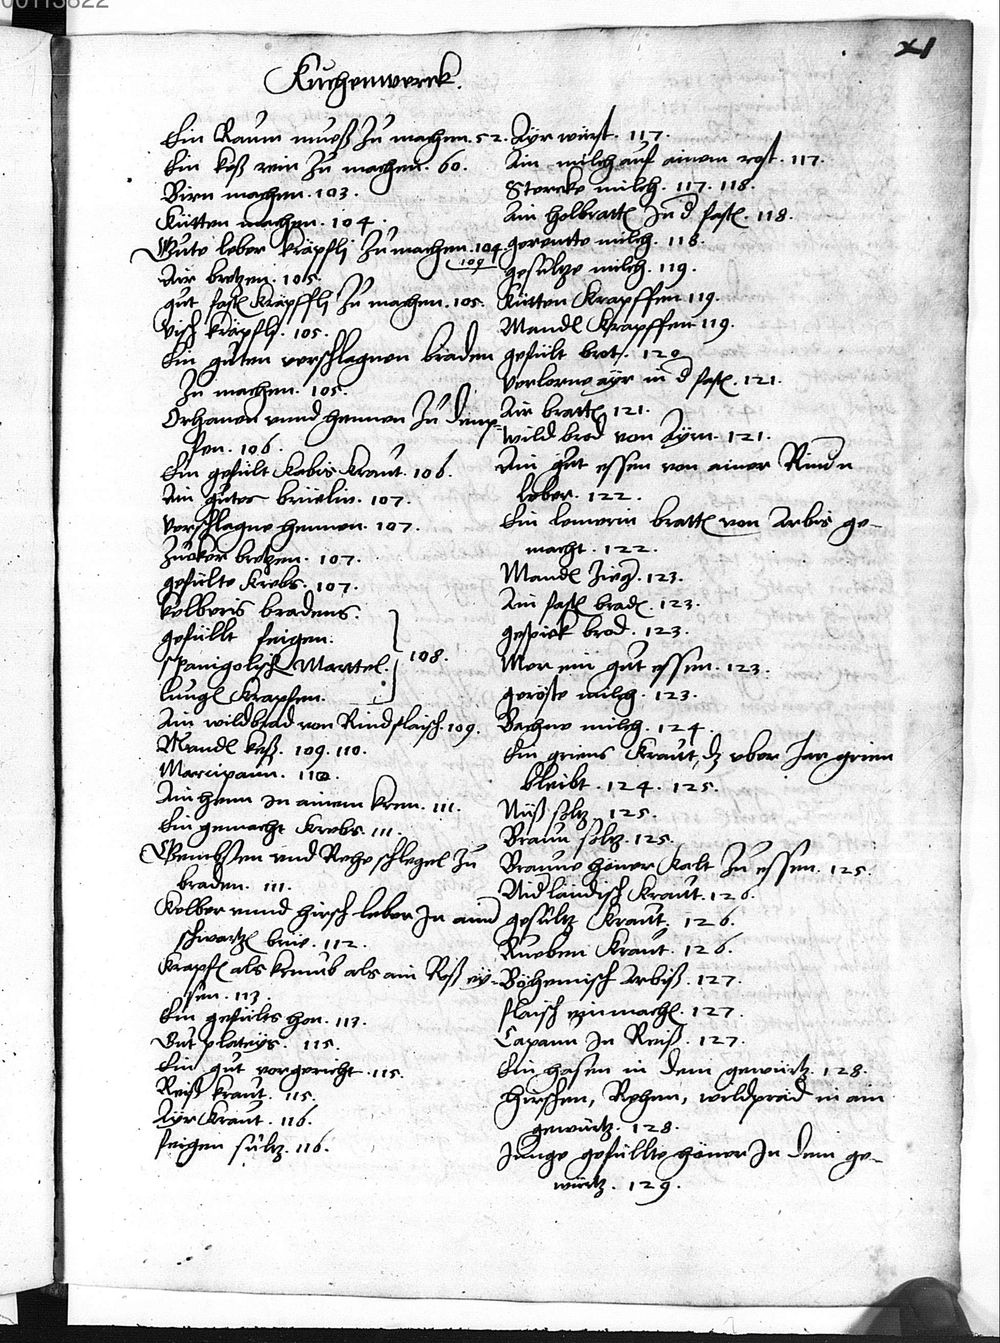 00113822
XI
Kuchenwerck.
Ein Raum mueß Zu machen. 52.
Ein keß rein Zu machen. 60.
Birn machen. 103.
Kütten machen. 104.
Gute leber kräpflj Zu machen. 104
109
Air bretzen. 105.
gut fast Kräpfflj Zu machen. 105.
Visch kräpflj. 105.
Ein guten verschlagnen braden
Zu machen. 105.
Orhanen vnnd hennen Zu demp-
fen. 106.
Ein gefült Kabis Kraut. 106.
Ain gutes brüelin. 107.
Verschlagne hennen. 107.
Zucker bretzen. 107.
gefülte Krebs. 107.
kelberis bradens.
gefüllt feigen.
spanigolisch Martel.
lungl Krapfen.
108.
Ain wildbrad von Rindflaisch. 109.
Mandl keß. 109. 110.
Marcipann. 110.
Ain henn in ainem kren. 111.
Ein gemacht Krebs. 111.
Gembsen vnd Rehe schlegel Zu
braden. 111.
Kelber vnnd hirsch leber In ainer
schwartz brüe. 112.
Krapfl als krumb als ain Roß eij-
sen. 113.
Ein gefülts hon. 113.
Gut plateys. 115.
Ein gut vorgericht. 115.
Reiß kraut. 115.
Ayr Kraut. 116.
feigen sultz. 116.
Ayr würst. 117.
Ain milch auf ainem rost. 117.
Stercke milch. 117. 118.
Ain holbratt In d fast. 118.
gerennte milch. 118.
gesultze milch. 119.
Kütten Krapffen 119.
Mandl Krapffen 119.
gefült brot. 120
Verlorne ayr in d fast. 121.
Air bratt 121.
Wild brad von Ayrn. 121.
Ain gut essen von ainer Rindn
leber. 122.
Ein lemerin bratt von Arbis ge-
macht. 122.
Mandl Zieg. 123.
Ain fast brad. 123.
gespickt brod. 123.
Mer ein gut essen. 123.
geröste milch. 123.
Bachne milch. 124.
Ein griens Kraut, dz vber Jar grien
bleibt. 124. 125.
Nuß sultz. 125.
Braun sultz. 125.
Braune höner Kalt Zu essen. 125.
Nidlandisch Kraut. 126.
gesultz Kraut. 126.
Rueben Kraut. 126.
Böhemisch Arbiß. 127.
flaisch einmachen. 127.
Capann In Reiß. 127.
Ein hasen in dem gewürtz. 128.
Hirschen, Rehen, wildprad in ain
gewürtz. 128.
Junge gefüllte höner In dem ge-
würtz. 129.